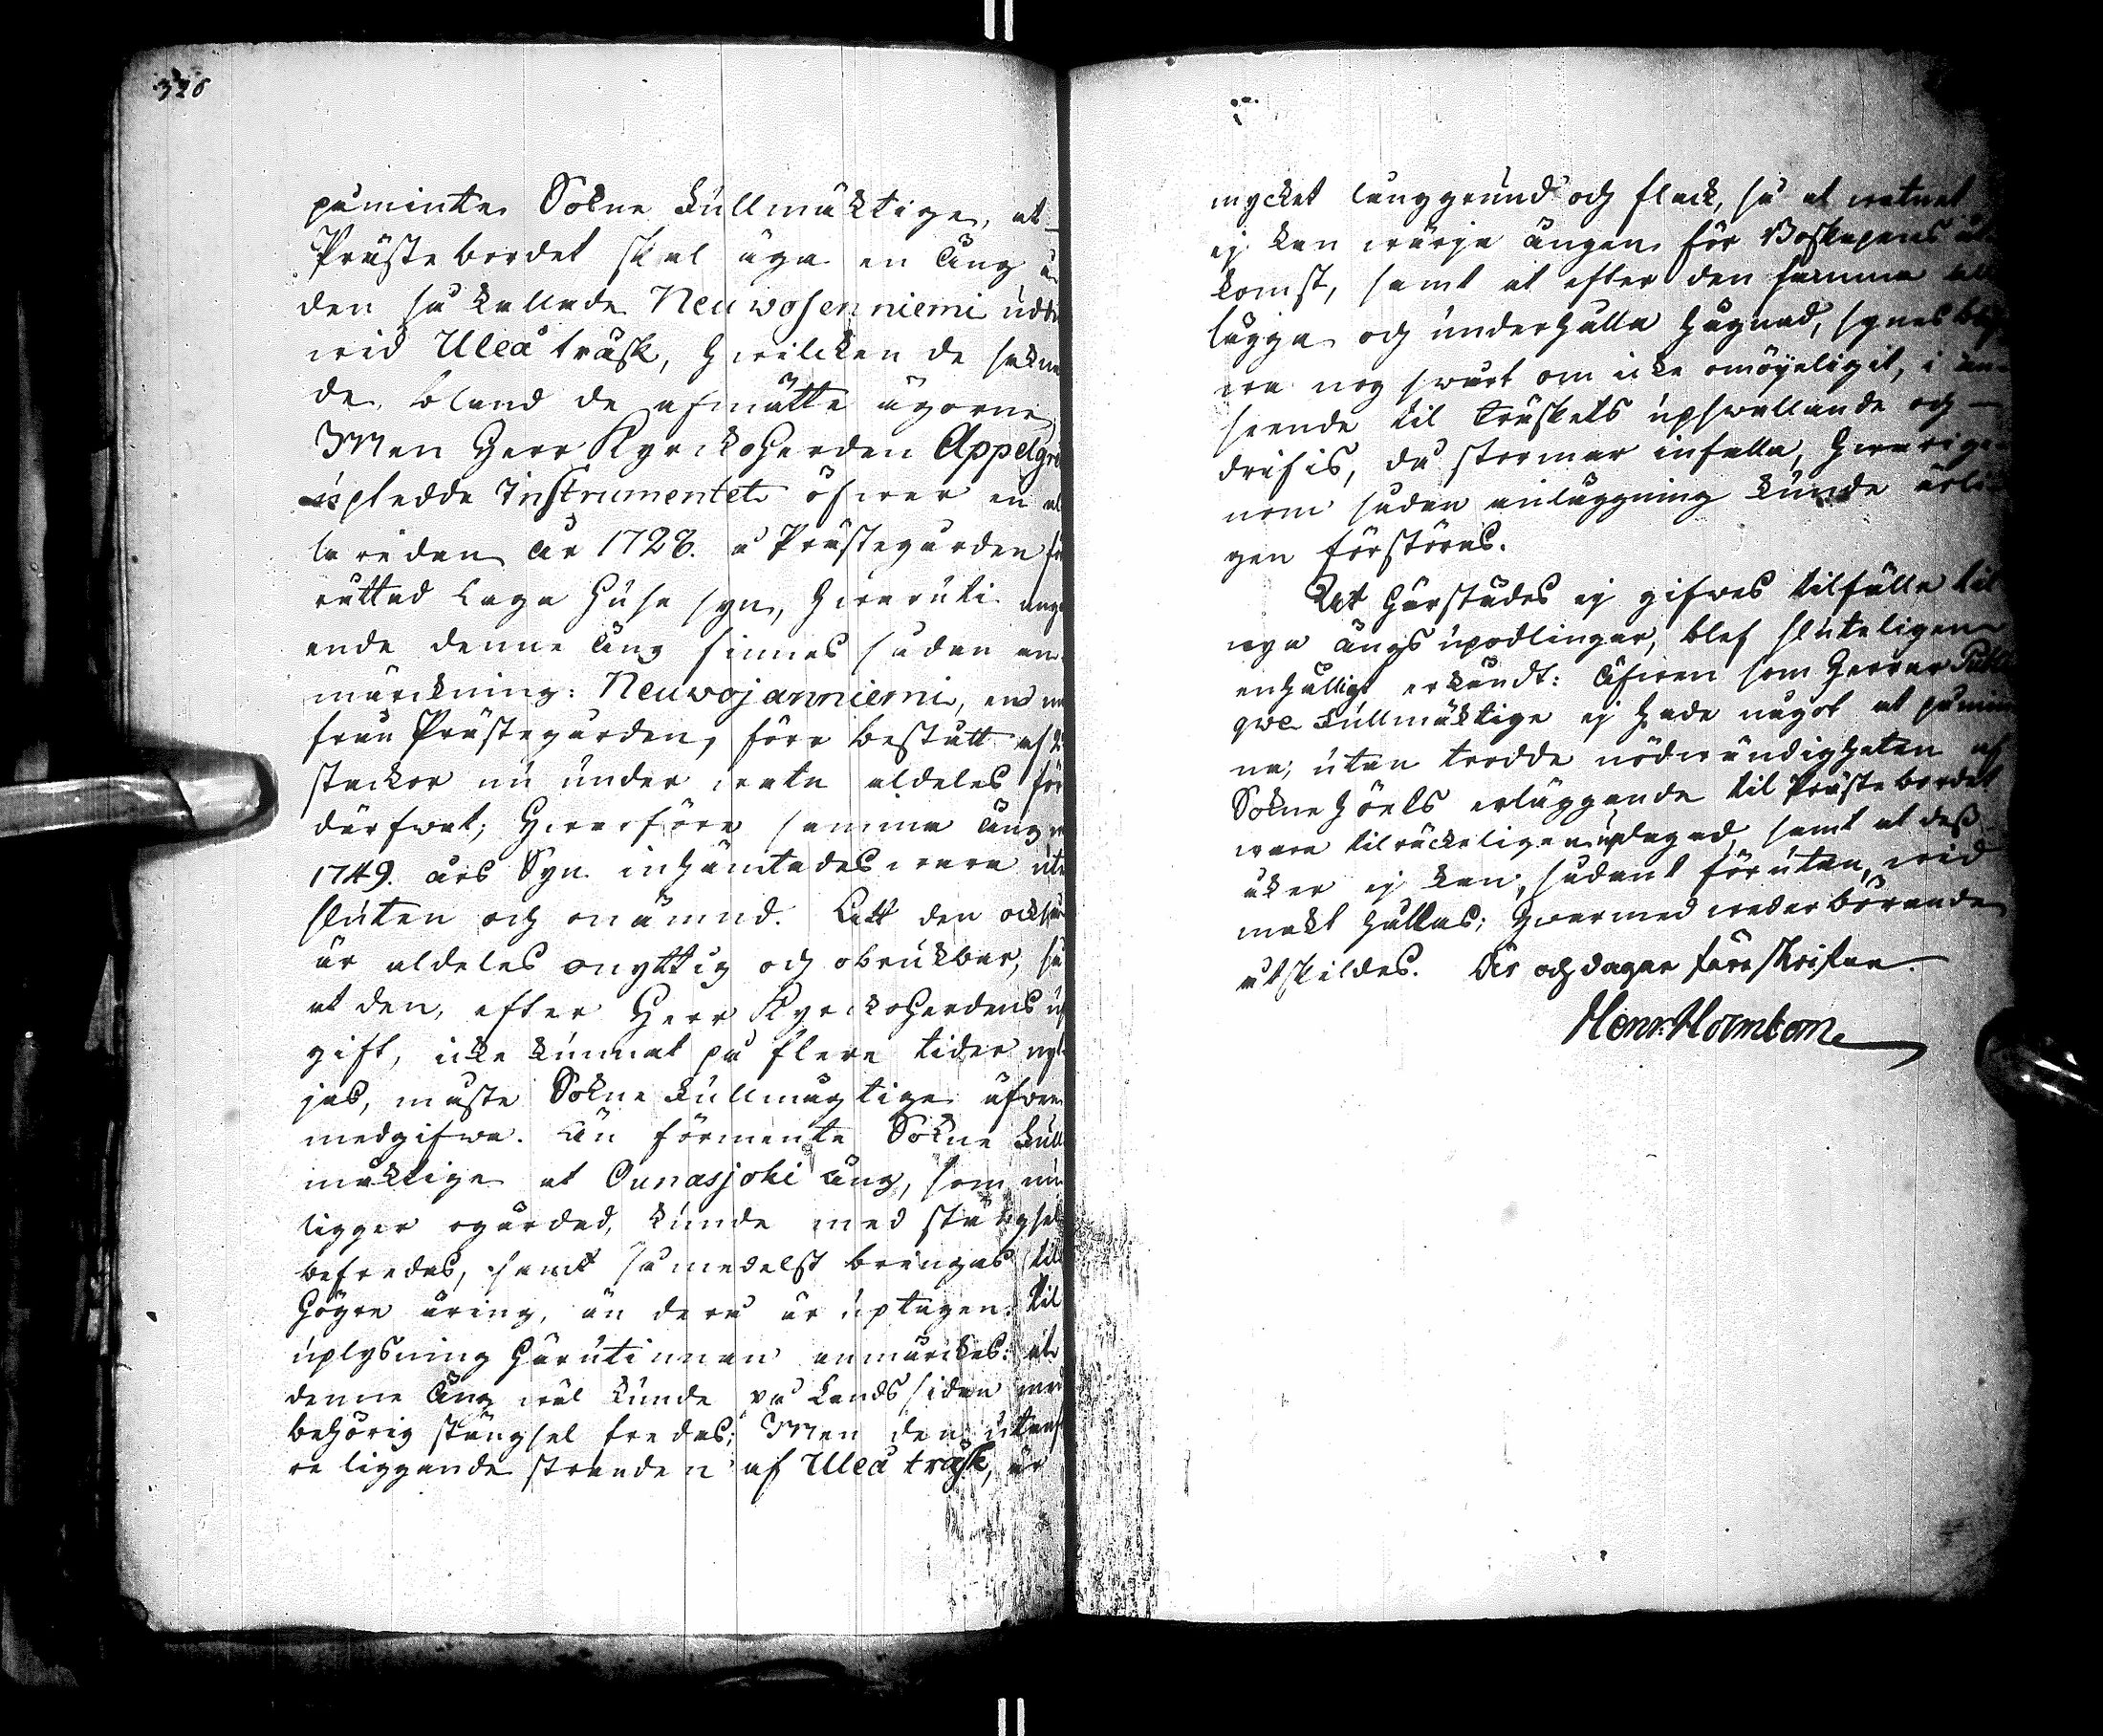 326
påminte Sokne Fullmäktige, at
Prästebordet skal äga en äng
den så kallade Neuwosenniemi udde
wid Uleå träsk, hwilcken de sakna
de bland de afmätte ägorne
Men Herr Kyrckoherden Appelgre
uptedde Instrumentet öfwer en
la redan år 1728. å Prästegården för
rättad Laga Huse syn, hwaruti ang
ende denne äng finnes sådan an
märckning: Neuwojanniemi, en
från Prästegården, förr bestått af
stackor nu under watn aldeles för
därfwat; hwarföre samma äng
1749. års Syn inhämtades wara ute
sluten och onämnd. Att den också
är aldeles onyttig och obrukbar, så
at den, efter Herr Kyrckoherdens up
gift, icke kunnat på flere tider nyt
jas, måste Sokne Fullmägtige äfwen
medgifwa. Än förmente Sokne Full
mäktige at Ounasjoki äng, som nu
ligger ogärdad, kunde med stängsel
befredas, samt såmedelst bringas til
högre äring, än deru är uptagen. Til
uplysning härutinnan anmärckes: at
denne äng wäl kunde på Landssidan med
behörig stängsel fredas; Men den utanf
re liggande stranden af Uleå träsk, är
mycket långgrund och flack, så at watnet
ej kan wärja ängen för Boskapens åt
komst, samt at efter den samma
lägga och underhålla hägnad, synes
wara nog swårt om icke omöyeligit, i an
seende til Träskets upswallande och
drifis, då stormar infalla, hwarige
nom sådan anläggning kunde årli
gen förstöras.
At härstädes ej gifwes tilfälle til
nya ängs upodlingar, blef sluteligen
enhälligt erkändt: Äfwen som Herrar
qve Fullmäktige ej hade något at påmin
na, utan trodde nödwändigheten af
Sokne höets erläggande til Prästebordet
wara tilräckeligen updagad, samt at dess
åker ej kan, sådant förutan, wid
makt hållas; hwarmed wederbörande
åtskildes. År och dagar förr skrifne.
Henr. Hornborn